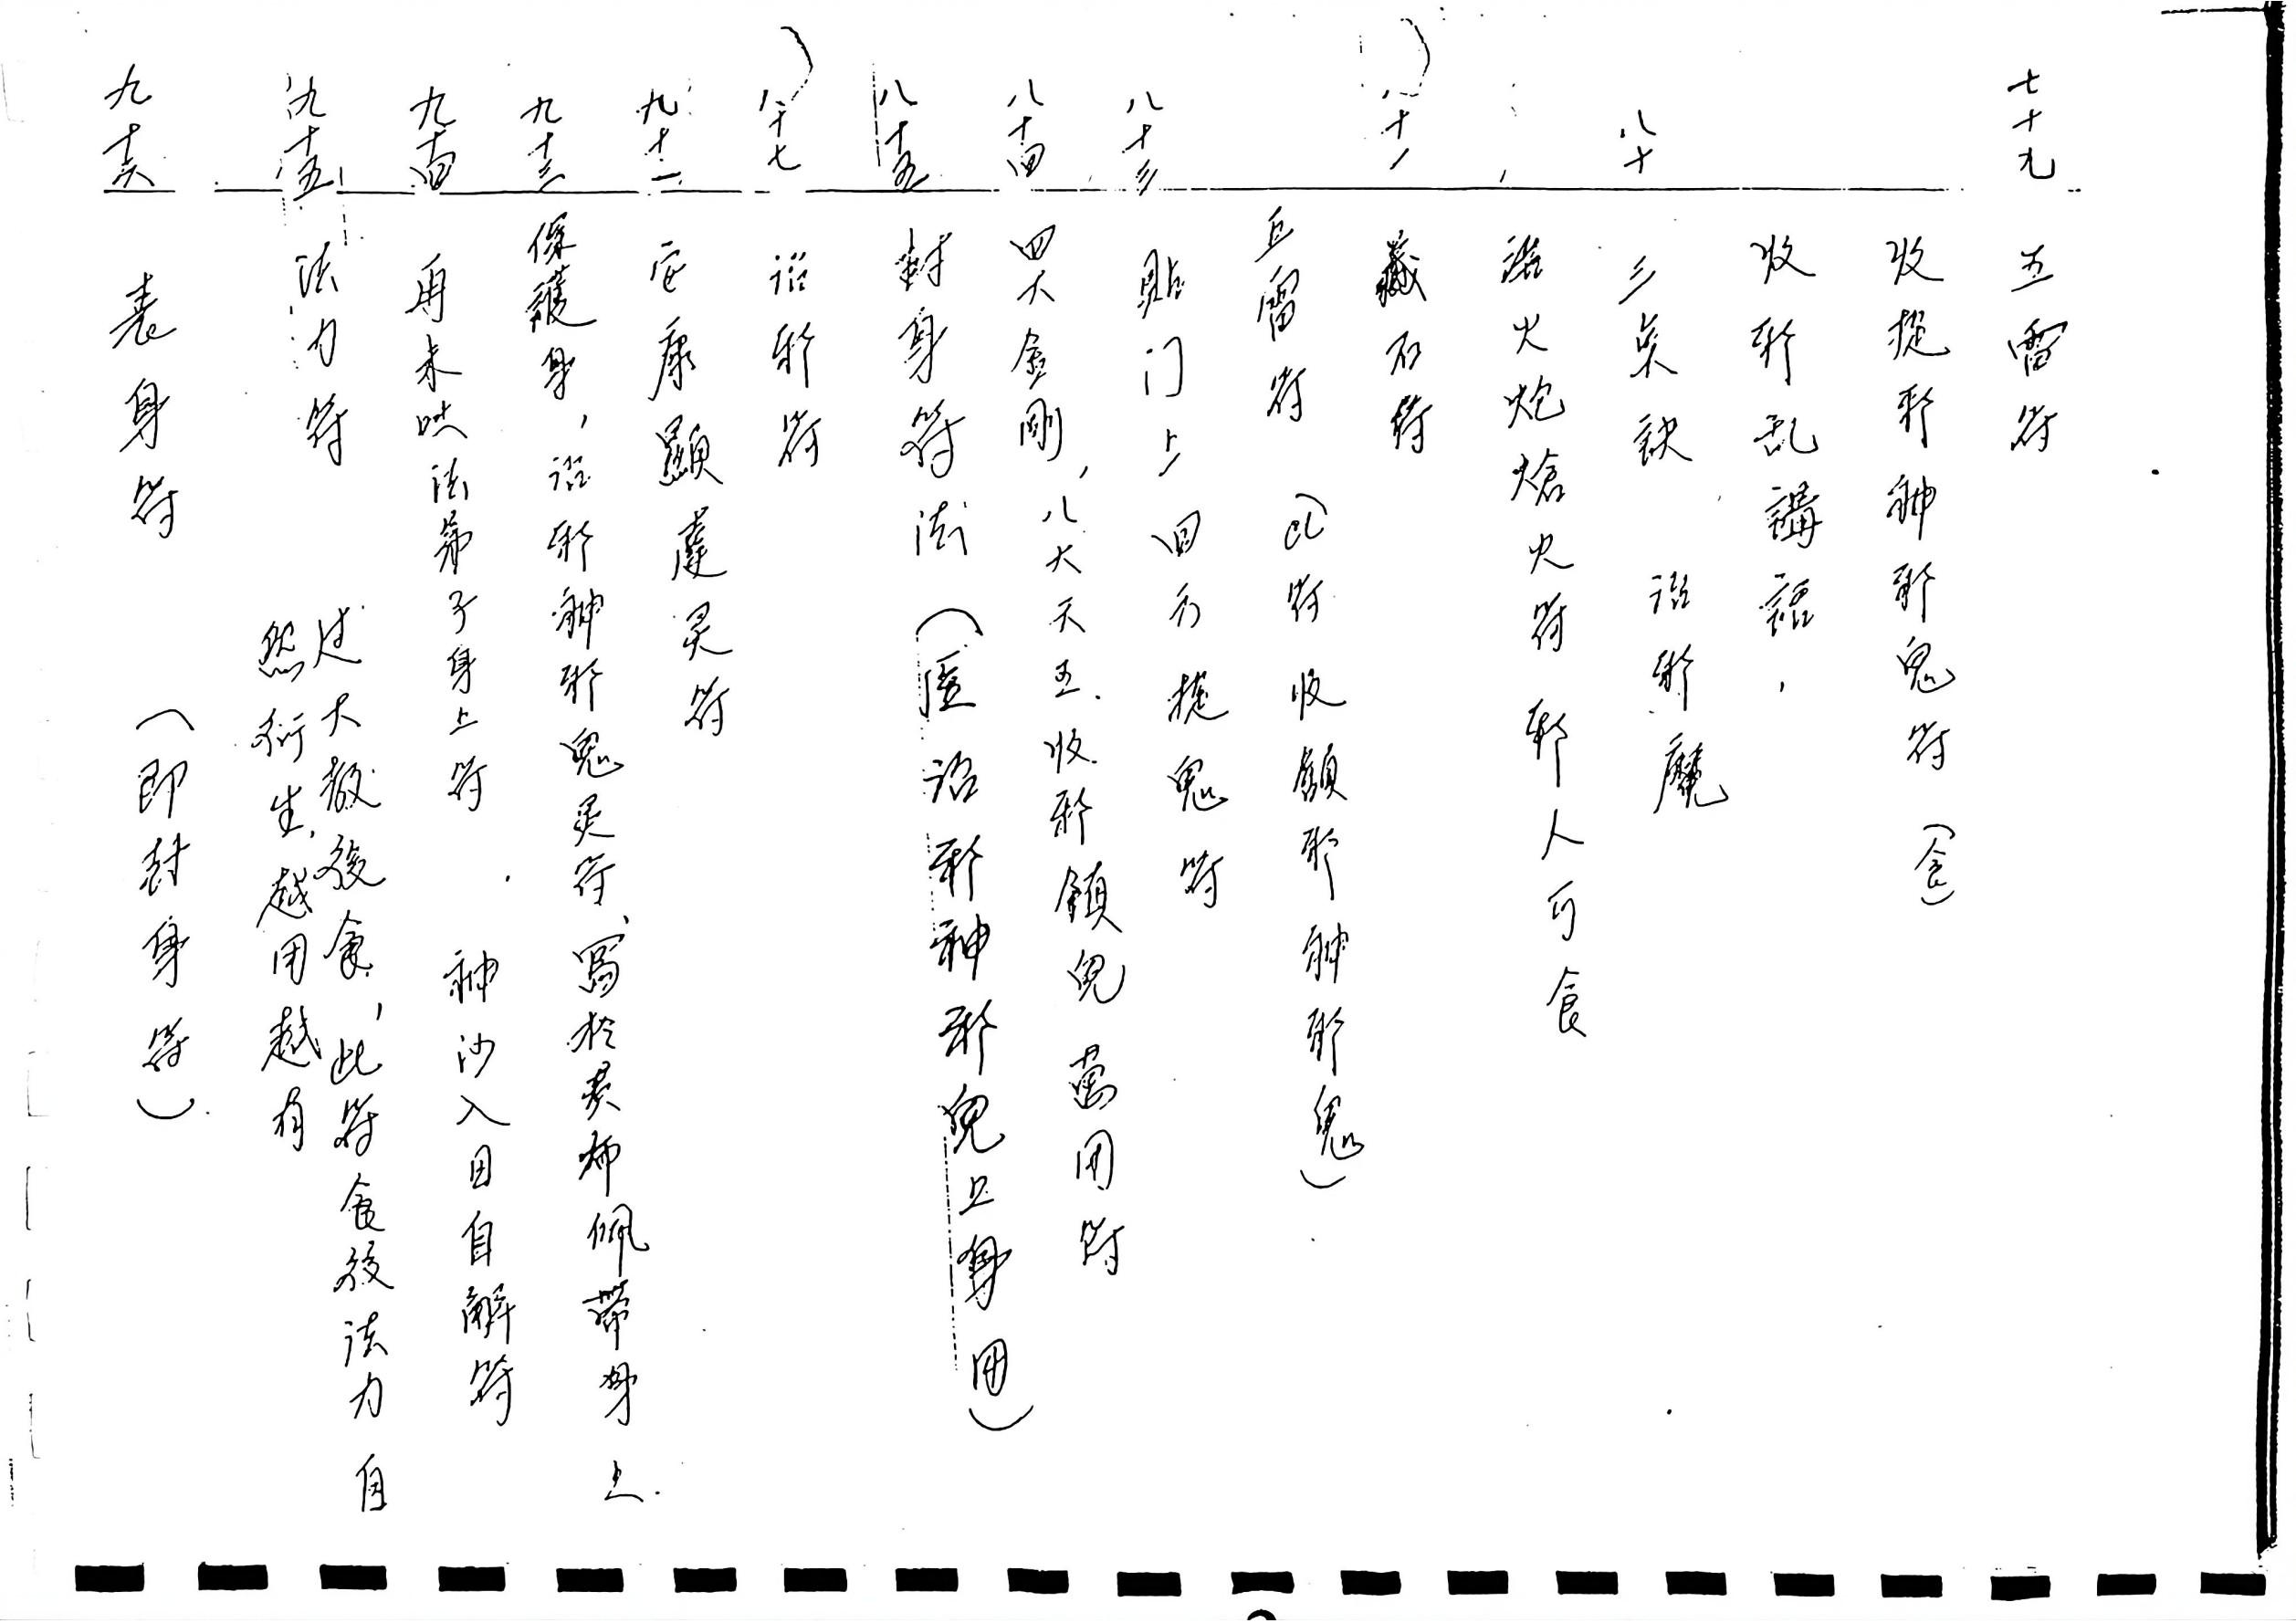 七十九 五雷符
收捉邪神邪鬼符（食）
收邪乱講話，
八十 三炁訣 治邪魔
火炮熗火符 邪人可食
八十一 藏石符
五雷符（此符收願邪神邪鬼）
八十三 貼门上四方捉鬼符
八十四 四大金剛，八大天王.收邪鎮鬼萬用符
八十五 封身符法（医治邪神邪鬼上身用）
八十七 治邪符
九十二 康顯虛灵符
九十三 保護身，治邪神邪鬼灵符、寫於炭炉佩帶身上.
九十四 再未吠法弟子身上符 神沙入目自解符
九十五 法力符 过大教後食，此符食後法力自
然衍生，越用越有
九十六 表身符（即封身符）